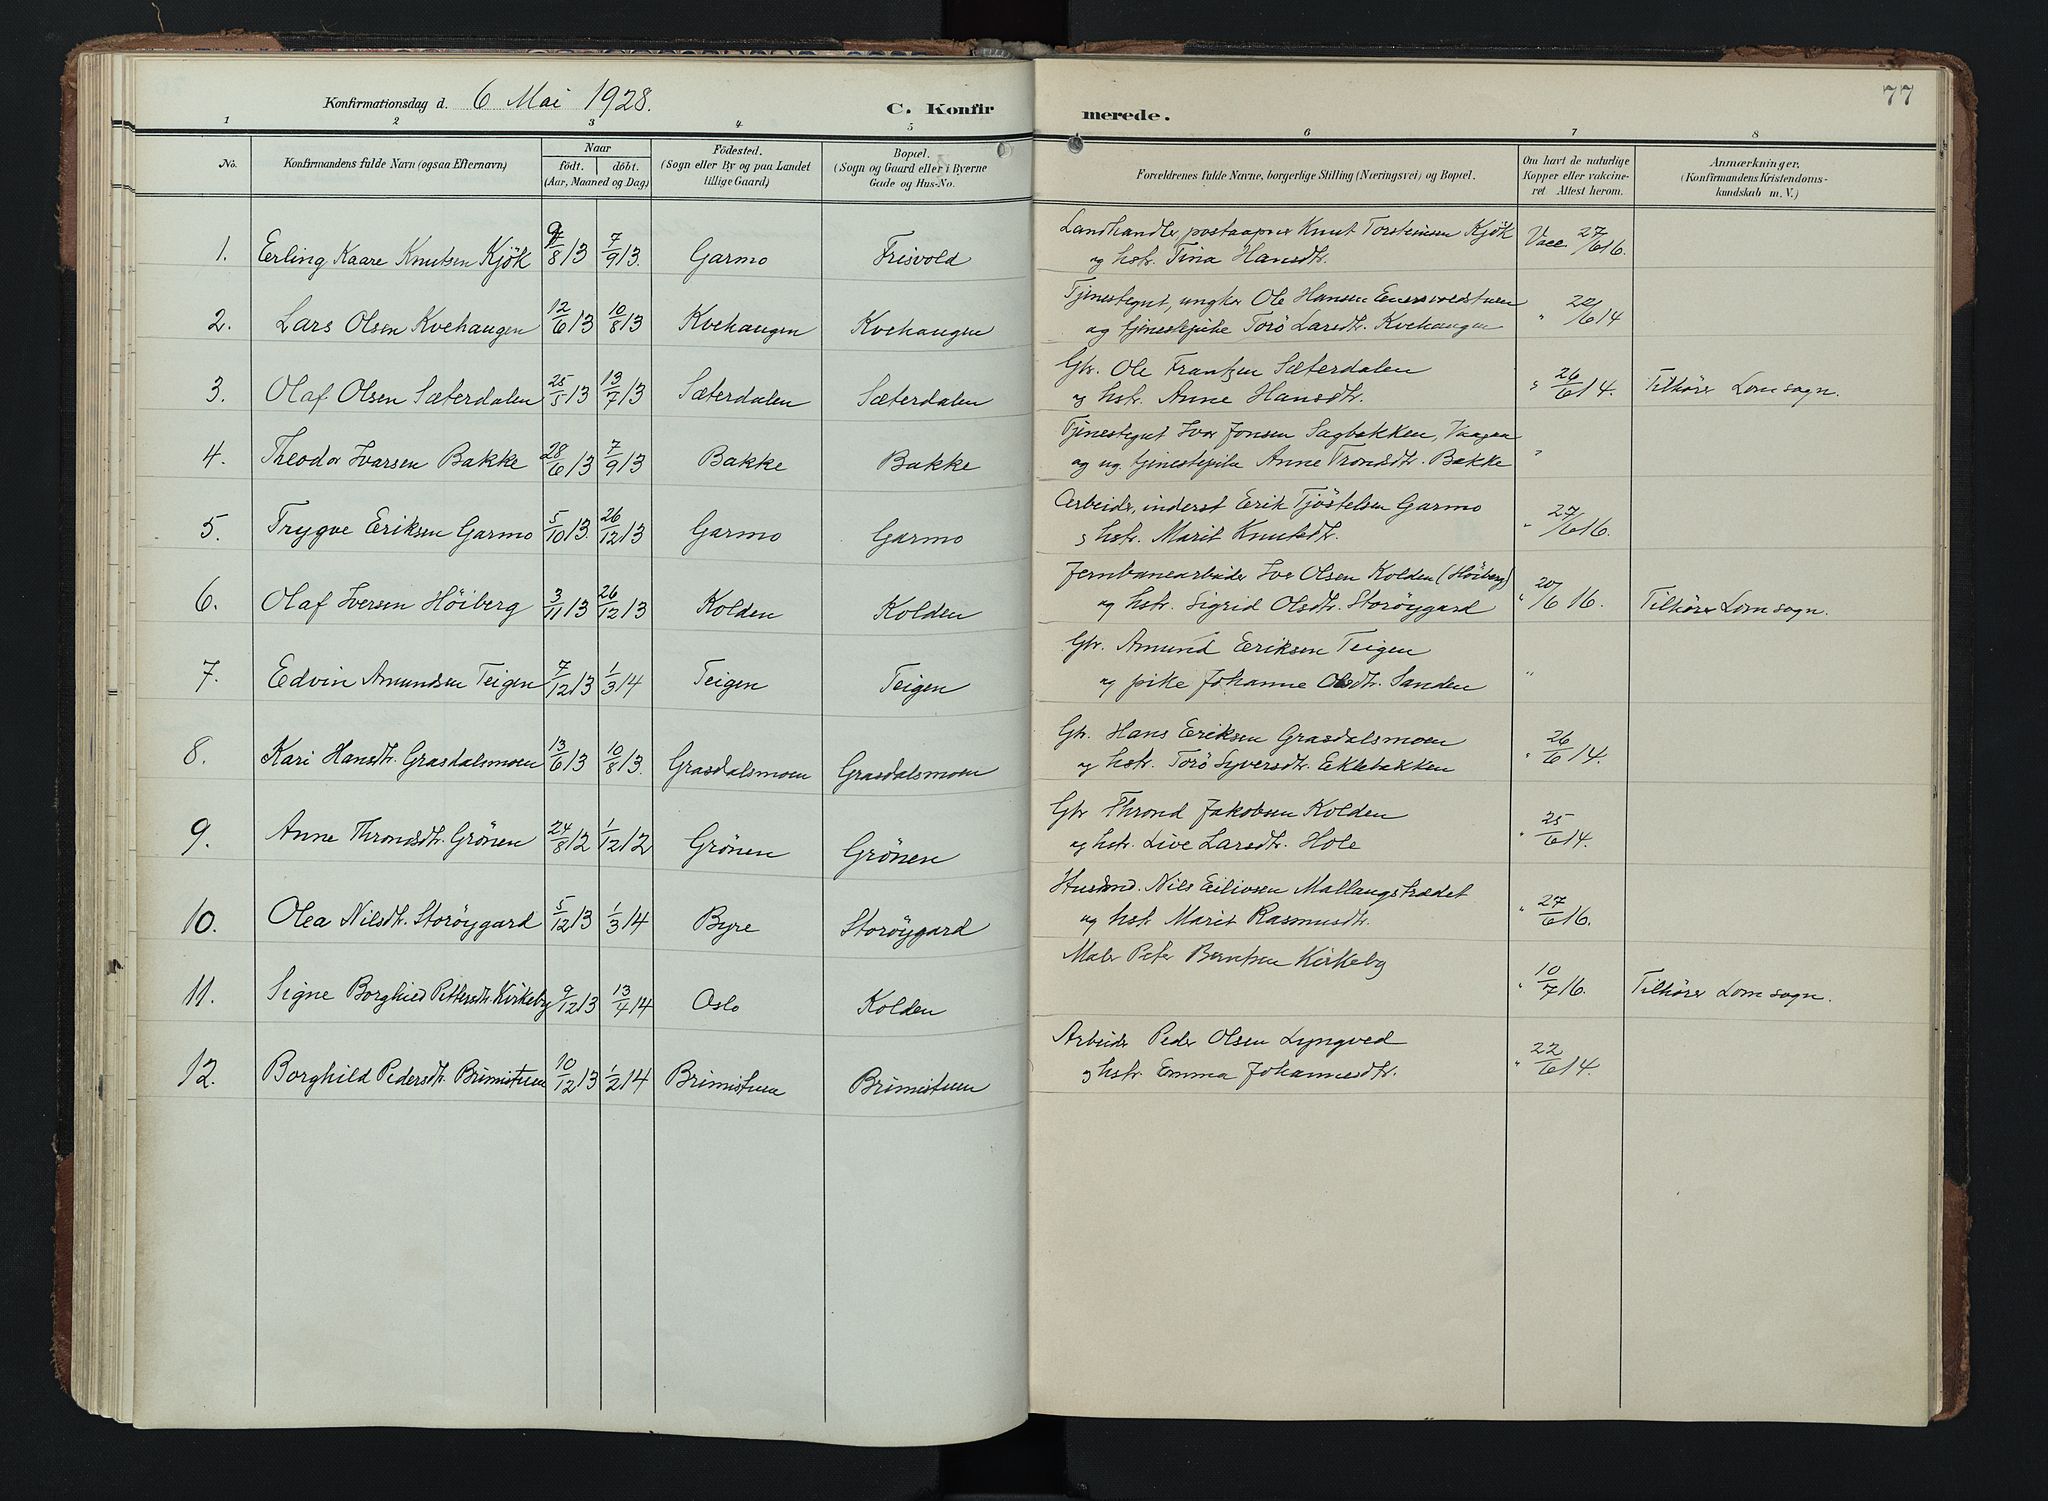 77
Konfirmationsdag d. 6 Mai 1928.
C. Konfirmerede.
1 2 3 4 5 6 7 8
No.
Konfirmandens fulde Navn (ogsaa Efternavn)
Naar
födt. döbt.
(Aar, Maaned og Dag)
Födested.
(Sogn eller By og paa Landet
tillige Gaard)
Bopæl.
(Sogn og Gaard eller i Byerne
Gade og Hus-No.
Forældrenes fulde Navne, borgerlige Stilling (Næringsvei) og Bopæl.
Om havt de naturlige
Kopper eller vakcine-
ret. Attest herom.
Anmærkninger.
(Konfirmandens Kristendoms-
kundskab m. V.)
1. Erling Kaare Knutsen Kjök 9/8 13 7/9 13. Garmo Frisvold
Landhandler, postaapner Knut Torsteinsen Kjök
og hstr. Tina Hansdtr.
Vacc. 27/6 16.
2. Lars Olsen Kvehaugen 12/6 13 10/8 13 Kvehaugen Kvehaugen
Tjenestegut, ungkar Ole Hansen
og tjenestepike Torö Larsdtr. Kvehaugen
" 22/6 14
3. Olaf Olsen Sæterdalen 25/5 13 13/7 13 Sæterdalen Sæterdalen
Gbr. Ole Frantzen Sæterdalen
og hstr. Anne Hansdtr.
" 26/6 14. Tilhörer Lom sogn.
4. Theodor Ivarsen Bakke 28/6 13 7/9 13 Bakke Bakke
Tjenestegut Ivar Jonsen Sagbakken, Vaagaa
og ug. tjenestepike Anne Trondsdtr. Bakke
"
5. Trygve Eriksen Garmo 5/10 13. 26/12 13 Garmo Garmo
Arbeider, inderst Erik Tjöstelsen Garmo
og hstr. Marit Knutsdtr.
" 27/6 16.
6. Olaf Iversen Höiberg 3/11 13 26/12 13 Kolden Kolden
Jernbanearbeider Iver Olsen Kolden (Höiberg)
og hstr. Sigrid Olsdtr. Storöygard
" 20/6 16. Tilhörer Lom sogn.
7. Edvin Amundsen Teigen 7/12 13 1/3 14 Teigen Teigen
Gbr. Amund Eriksen Teigen
og pike Johanne Olsdtr. Sanden
"
8. Kari Hansdtr. Grasdalsmoen 13/6 13 10/8 13. Grasdalsmoen Grasdalsmoen
Gbr. Hans Eriksen Grasdalsmoen
og hstr. Torö Syversdtr. Eklebakken
" 26/6 14.
9. Anne Throndsdtr. Grönen 24/8 12 1/12 12 Grönen Grönen
Gbr Thrond Jakobsen Kolden
og hstr. Live Larsdtr. Hole
" 25/6 14.
10. Olea Nilsdtr. Storöygard 5/12 13 1/3 14 Byre Storöygard
Husmd. Nils Eilivsen Mallangstrædet
og hstr Marit Rasmusdtr.
" 27/6 16.
11. Signe Borghild Pettersdtr. Kirkeby 9/12 13 13/4 14 Oslo Kolden
Maler Peter Berntsen Kirkeby
" 10/7 16. Tilhörer Lom sogn.
12. Borghild Pedersdtr. Brimistuen 10/12 13 1/2 14 Brimistuen Brimistuen
Arbeider Peder Olsen Lyngved
og hstr. Emma Johannesdtr.
" 22/6 14.